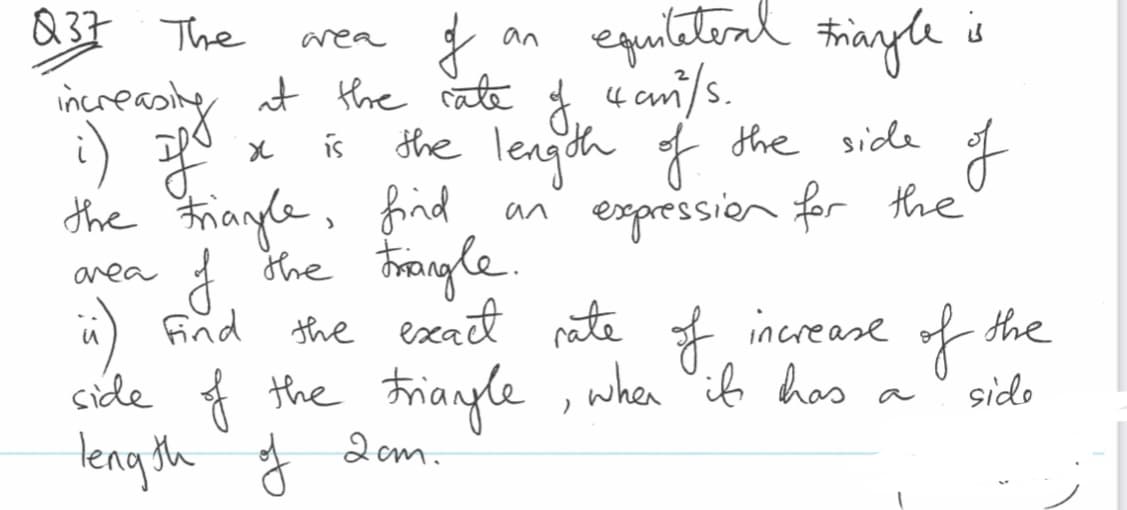 Q37 The area of an equilateral triangle is
increasing at the rate of 4cm²/s.
i) If x is the length of the side of
the triangle, find an expression for the
area of the triangle.
ii) Find the exact rate of increase of the
side of the triangle, when it has a side
length of 2cm.